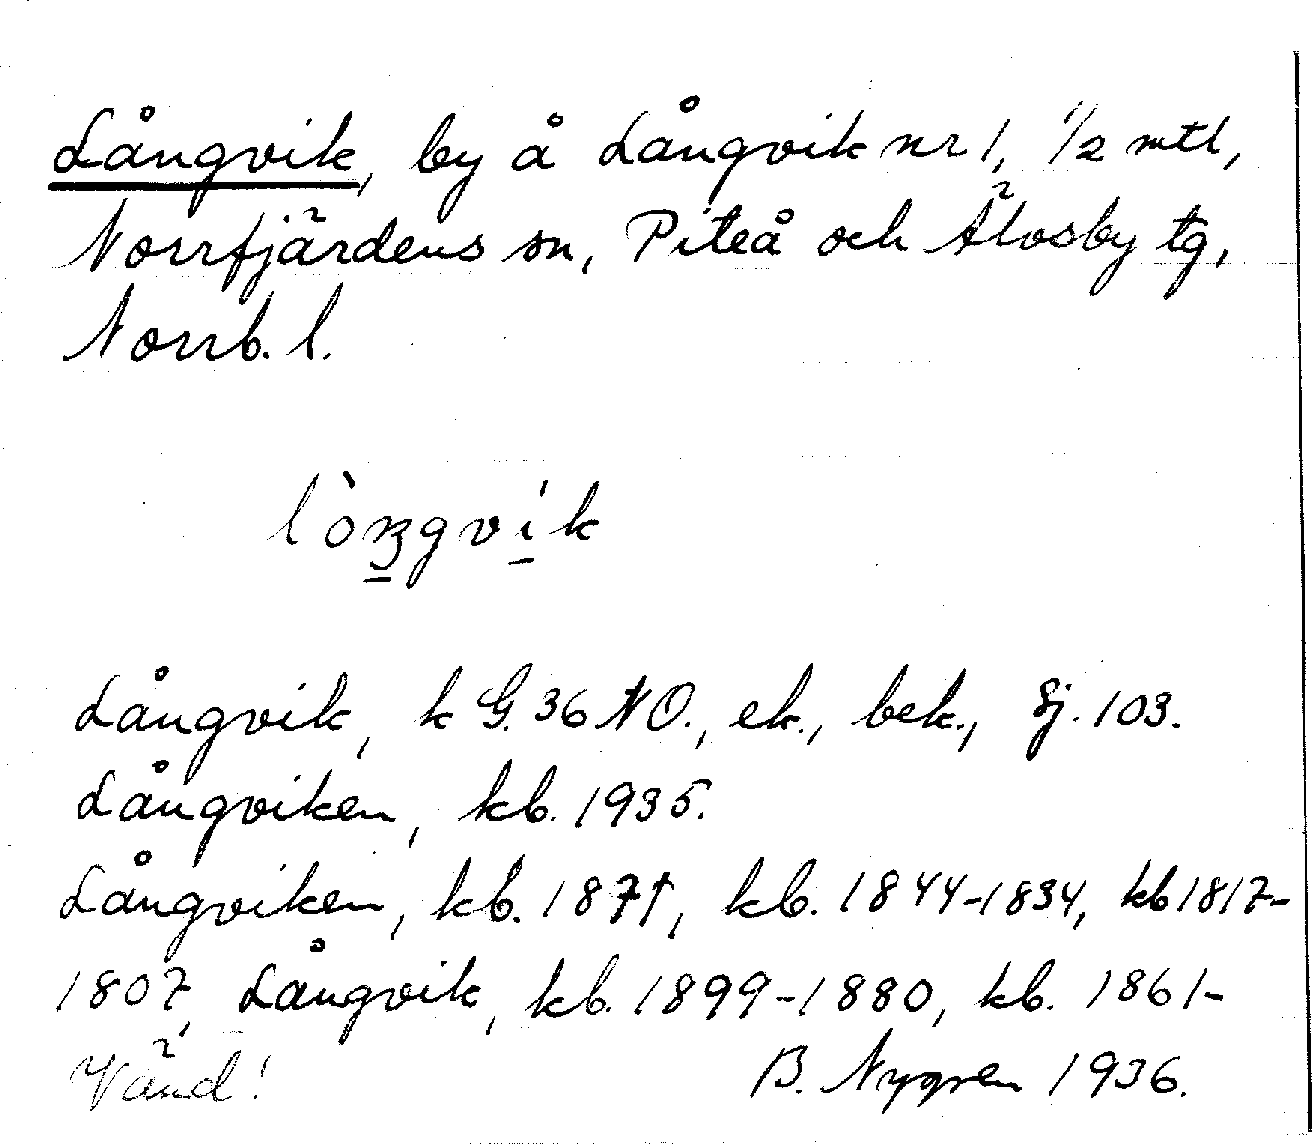 Långvik, by å Långvik nr 1, 1/2 mtl,
Norrfjärdens sn, Piteå och Älvsby tg,
Norrb. l.
Långvik, k G. 36 NO., ek., bek., Sj. 103.
Långviken, kb. 1935.
Långviken, kb. 1871, kb. 1844-1834, kb 1817-
1807, Långvik, kb. 1899-1880, kb. 1861-
Vänd! B. Nygren 1936.